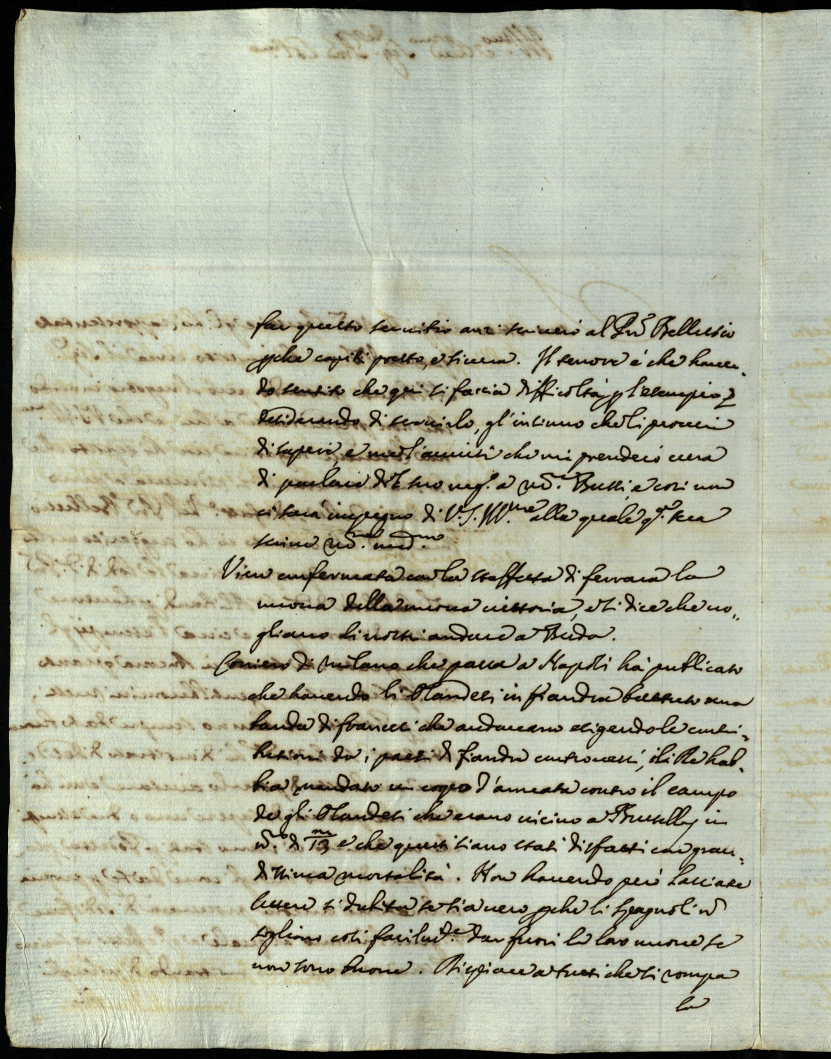 far questo servitio anzi scriverò al Pre Bellusio
pche capiti presto, e sicura. Il tenore è che haven-
do sentito che qui si faccia difficoltà p l'esempio, e
desiderando di servirlo, gl'intimo che li procuri
di sapere, e me l'avvisi che mi prenderò cura
di parlare del suo neg.o a Bussi, e così non
ci sarà impegno di V.S. Ill.ma alla quale q.a sera
scrivo
Viene confermata con la staffetta di ferrara la
nuova della nuova vittoria, e si dice che vo-
gliano li nostri andare a Buda.
Corriero di milano che passa a Napoli hà publicato
che havendo li Olandesi in fiandra battuto una
banda di francesi che andavano esigendo le contri-
butioni da i paesi di fiandra controversi, il Rè hab-
bia mandato un corpo d'armata contro il campo
de gli Olandesi che erano vicino a Bruselles in
n.o di 13 m e che questi siano stati disfatti con gran-
dissima mortalità. Non havendo però lasciate
lettere si dubita se sia vero pche li spagnoli nō
sogliono così facilm.te dar fuori le loro nuove se
non sono buone. Dispiace a tutti che si rompa
la